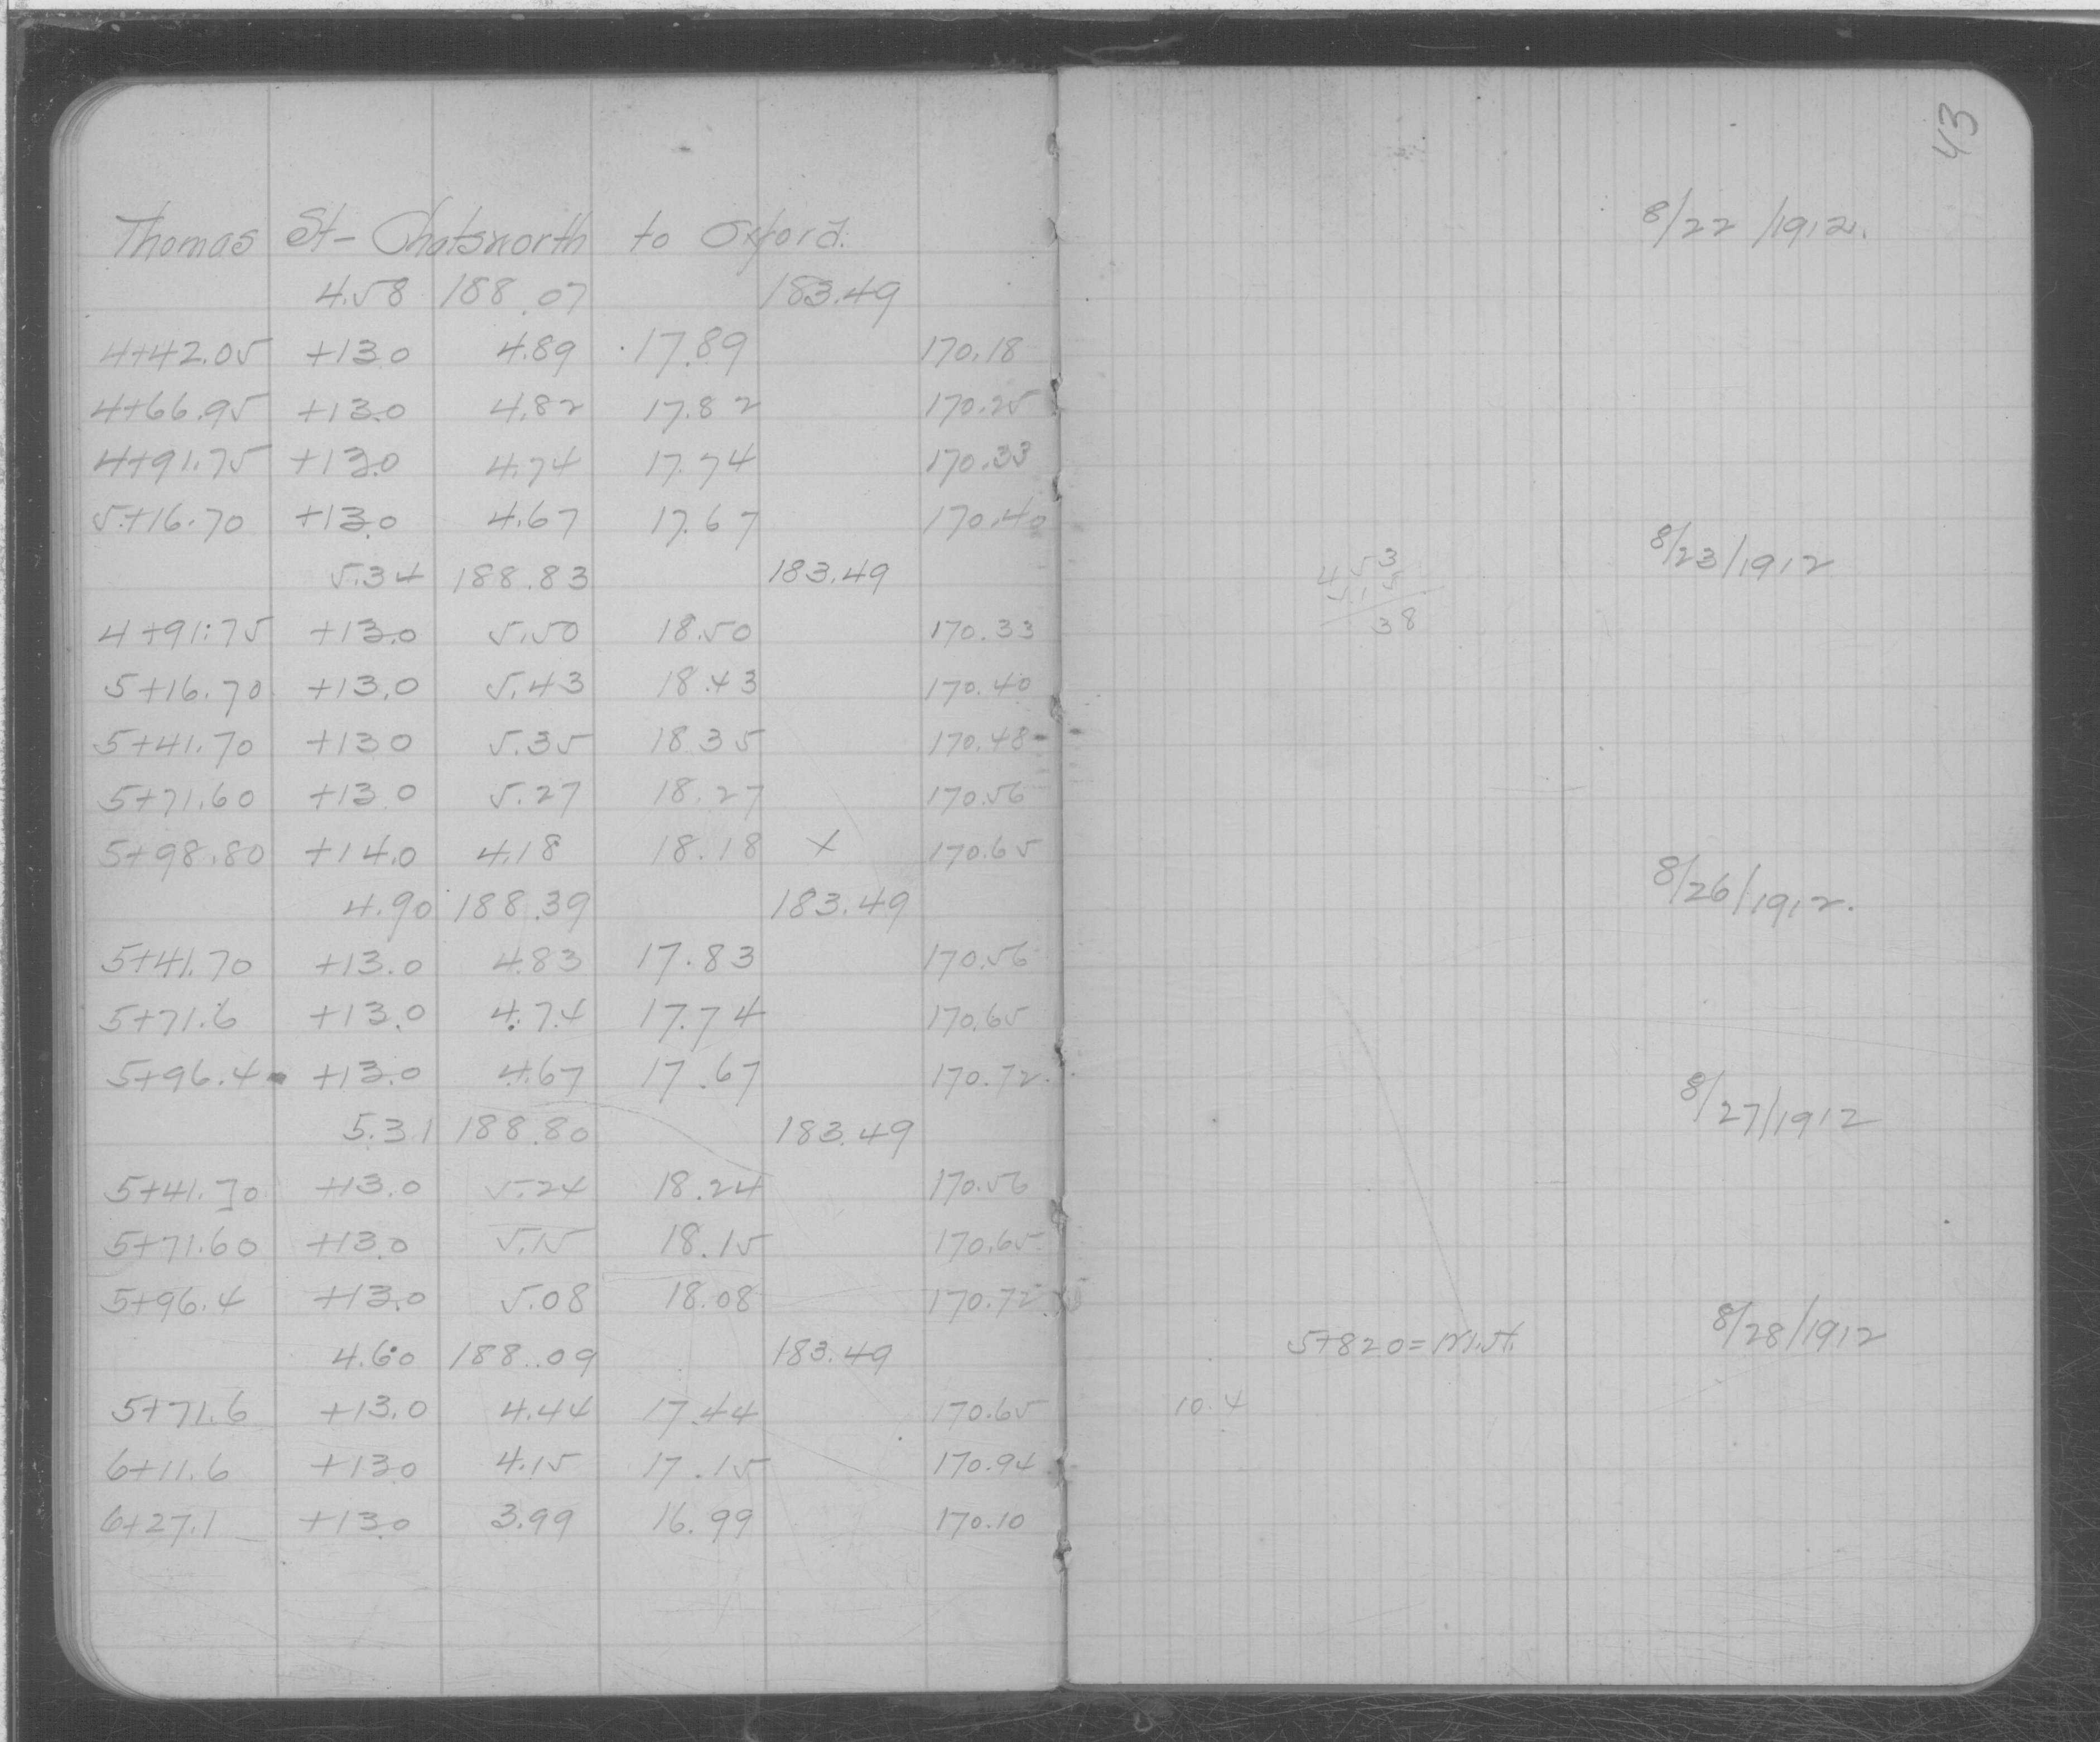 43
Thomas St - Chatsworth to Oxford.
8/22/1912.
4.58 188.07 183.49
4+42.05 +13.0 4.89 17.89 170.18
4+66.95 +13.0 4.82 17.82 170.25
4+91.75 +13.0 4.74 17.74 170.33
5+16.70 +13.0 4.67 17.67 170.40
8/23/1912
5.34 188.83 183.49
453
38
4+91.75 +13.0 5.50 18.50 170.33
5+16.70 +13.0 5.43 18.43 170.40
5+41.70 +130 5.35 18.35 170.48
5+71.60 +13.0 5.27 18.27 170.56
5+98.80 +14.0 4.18 18.18 x 170.65
8/26/1912.
4.90 188.39 183.49
5+41.70 +13.0 4.83 17.83 170.56
5+71.6 +13.0 4.74 17.74 170.65
5+96.4 +13.0 4.67 17.67 170.72
8/27/1912
5.31 188.80 183.49
5+41.70 +13.0 5.24 18.24 170.56
5+71.60 +13.0 5.15 18.15 170.65
5+96.4 +13.0 5.08 18.08 170.72
8/28/1912
4.60 188.09 183.49
5+820=M.H.
5+71.6 +13.0 4.44 17.44 170.65
10.4
6+11.6 +130 4.15 17.15 170.94
6+27.1 +13.0 3.99 16.99 170.10